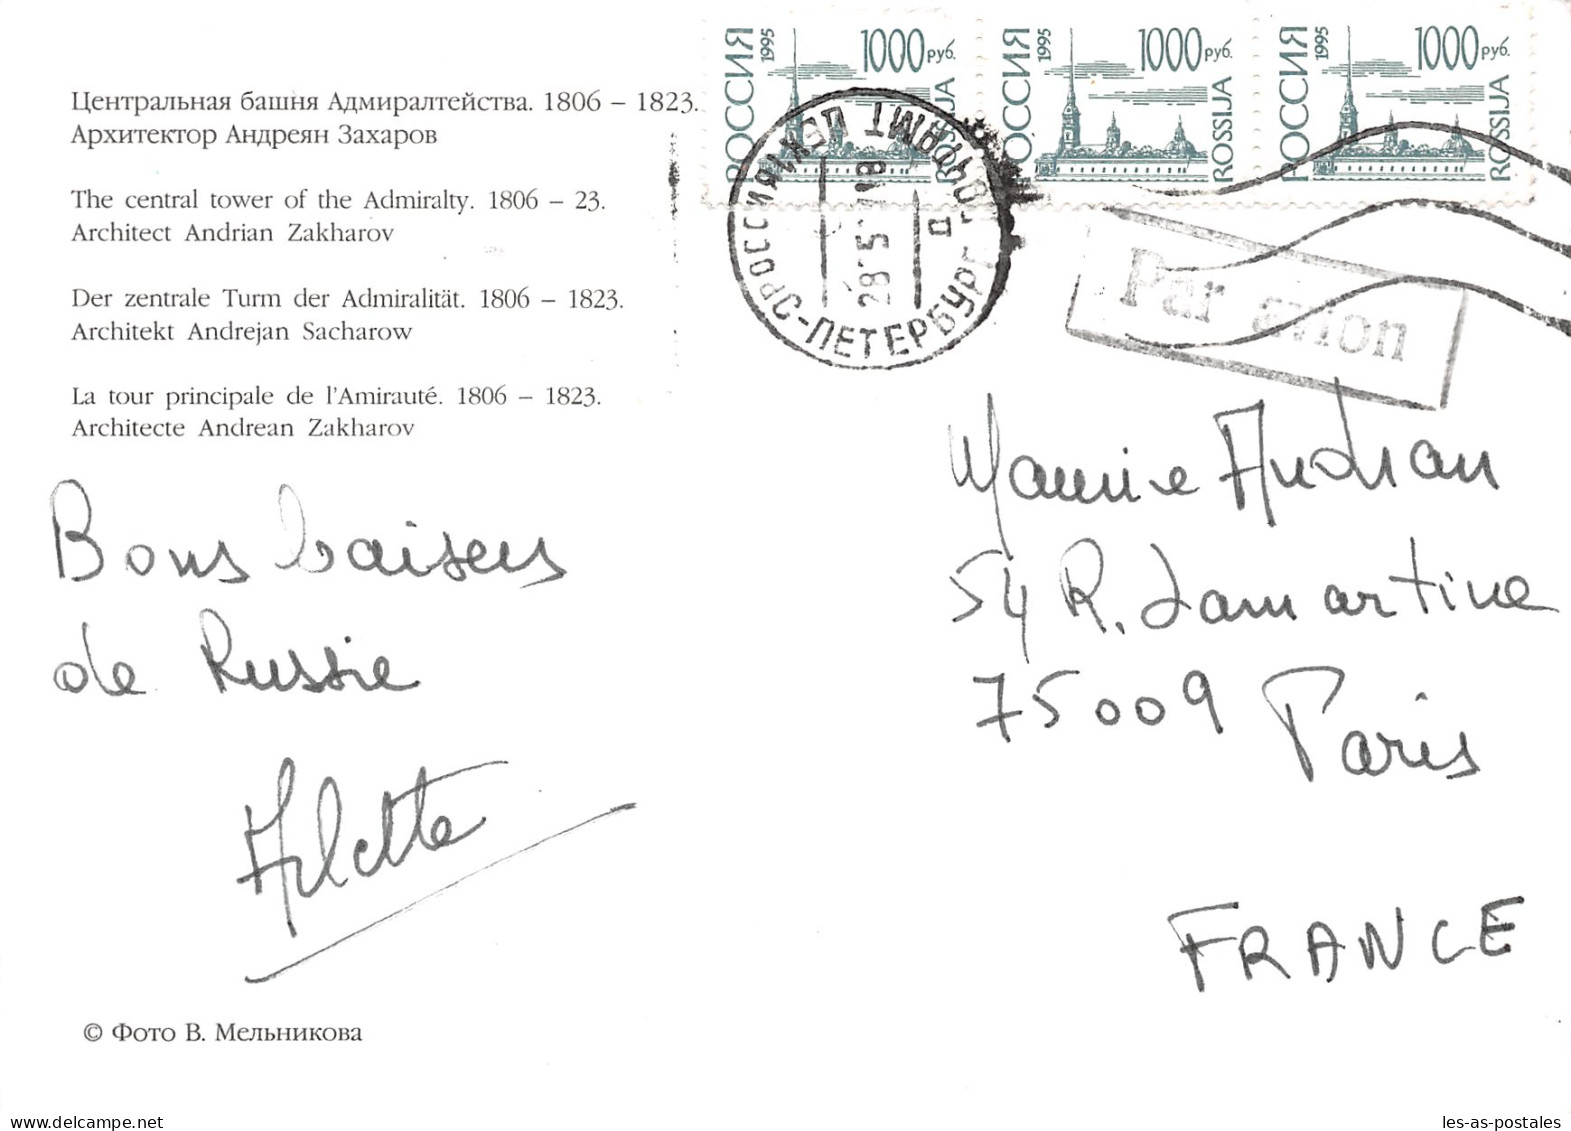 Центральная башня Адмиралтейства. 1806 – 1823.
Архитектор Андреян Захаров
The central tower of the Admiralty. 1806 – 23.
Architect Andrian Zakharov
Der zentrale Turm der Admiralität. 1806 – 1823.
Architekt Andrejan Sacharow
La tour principale de l'Amirauté. 1806 – 1823.
Architecte Andrean Zakharov
Bons baisers
de Russie
Arlette
© Фото В. Мельникова
РОССИЯ 1995 1000 руб. ROSSIJA
РОССИЯ 1995 1000 руб. ROSSIJA
РОССИЯ 1995 1000 руб. ROSSIJA
С-ПЕТЕРБУРГ ПОЧТАМТ
РОССИЯ
28 5
Д
Par avion
54 R. Lamartine
75009 Paris
FRANCE
les-as-postales
delcampe.net